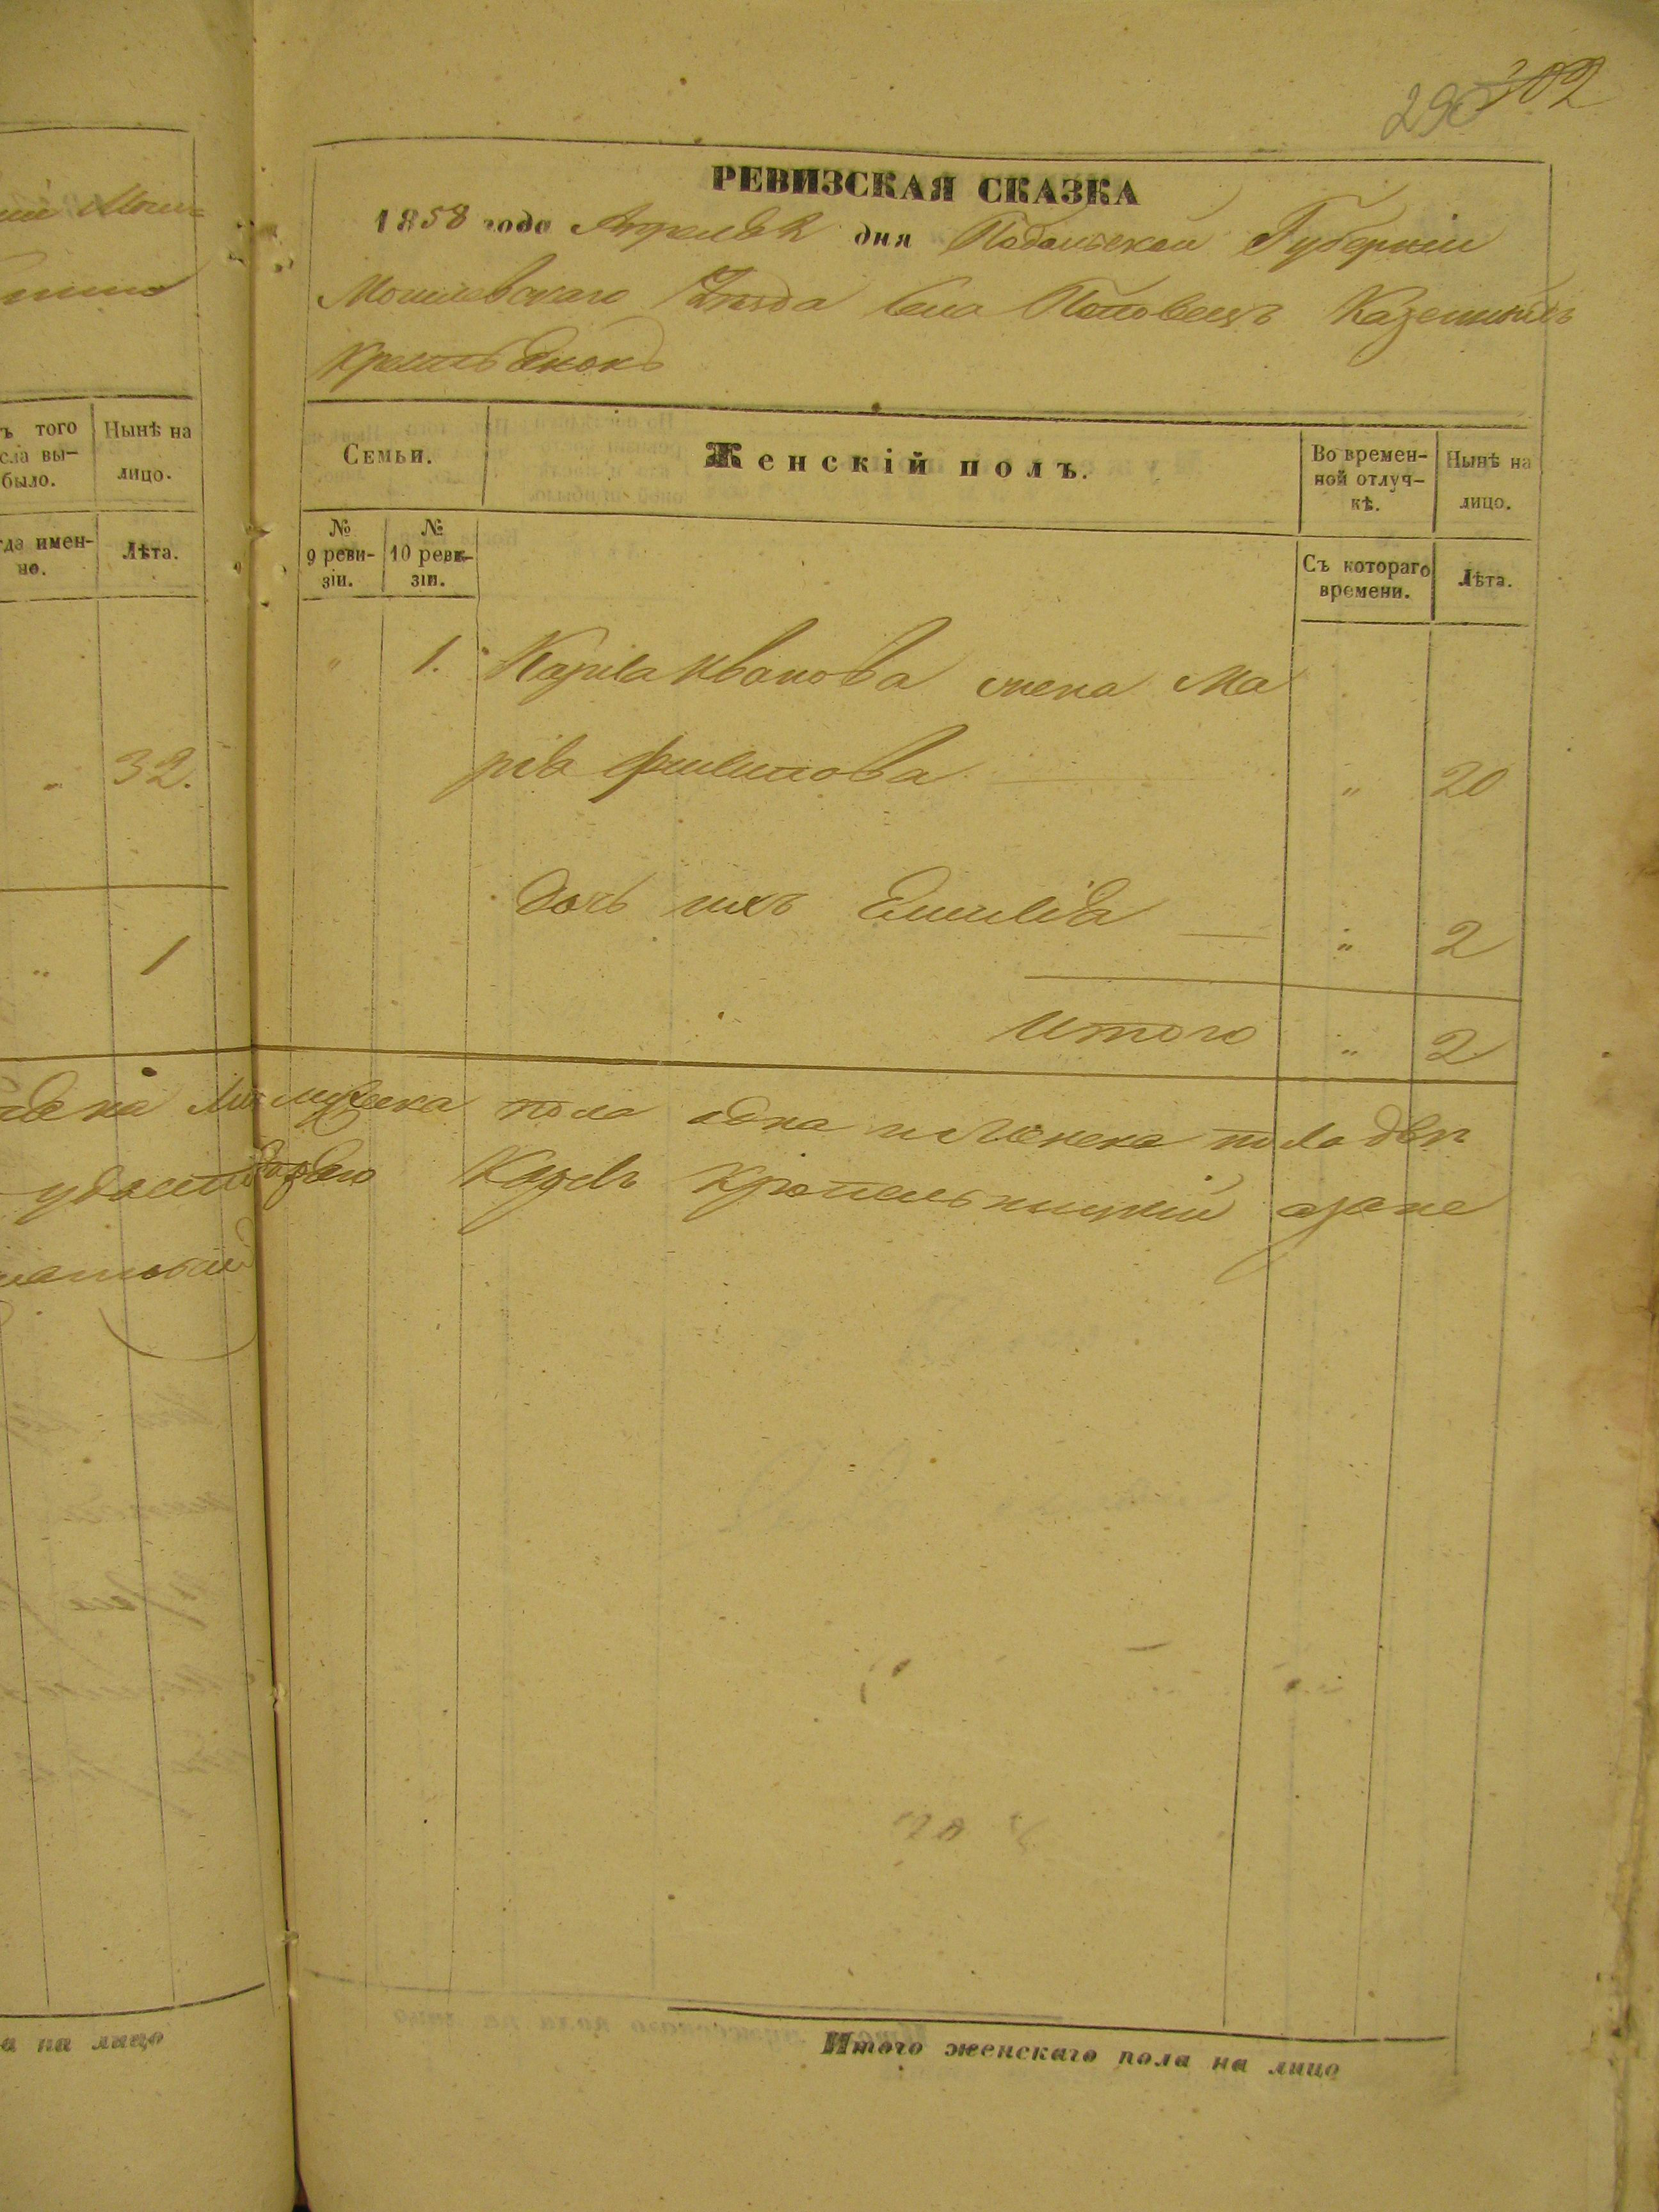 302
РЕВИЗСКАЯ СКАЗКА
1858 года Апреля 2 дня Подольской Губерніи
Могилевскаго Уѣзда Села Поповецъ Казенныхъ
Крестьянокъ
ъ того
сла вы-
было.
Нынѣ на
лицо.
гда имен-
но.
Лѣта.
Семьи.
Женскій полъ.
Во времен-
ной отлуч-
кѣ.
Нынѣ на
лицо.
№
9 реви-
зіи.
№
10 реви-
зіи.
Съ котораго
времени.
Лѣта.
" 1. Иванова жена Ма
рія Филипова " 20
" 32.
Дочь ихъ Емилія " 2
" 1
Итого " 2
мужеска пола одна и женска пола двѣ
Кропельницкій азане
а на лицо
Итого женскаго пола на лицо